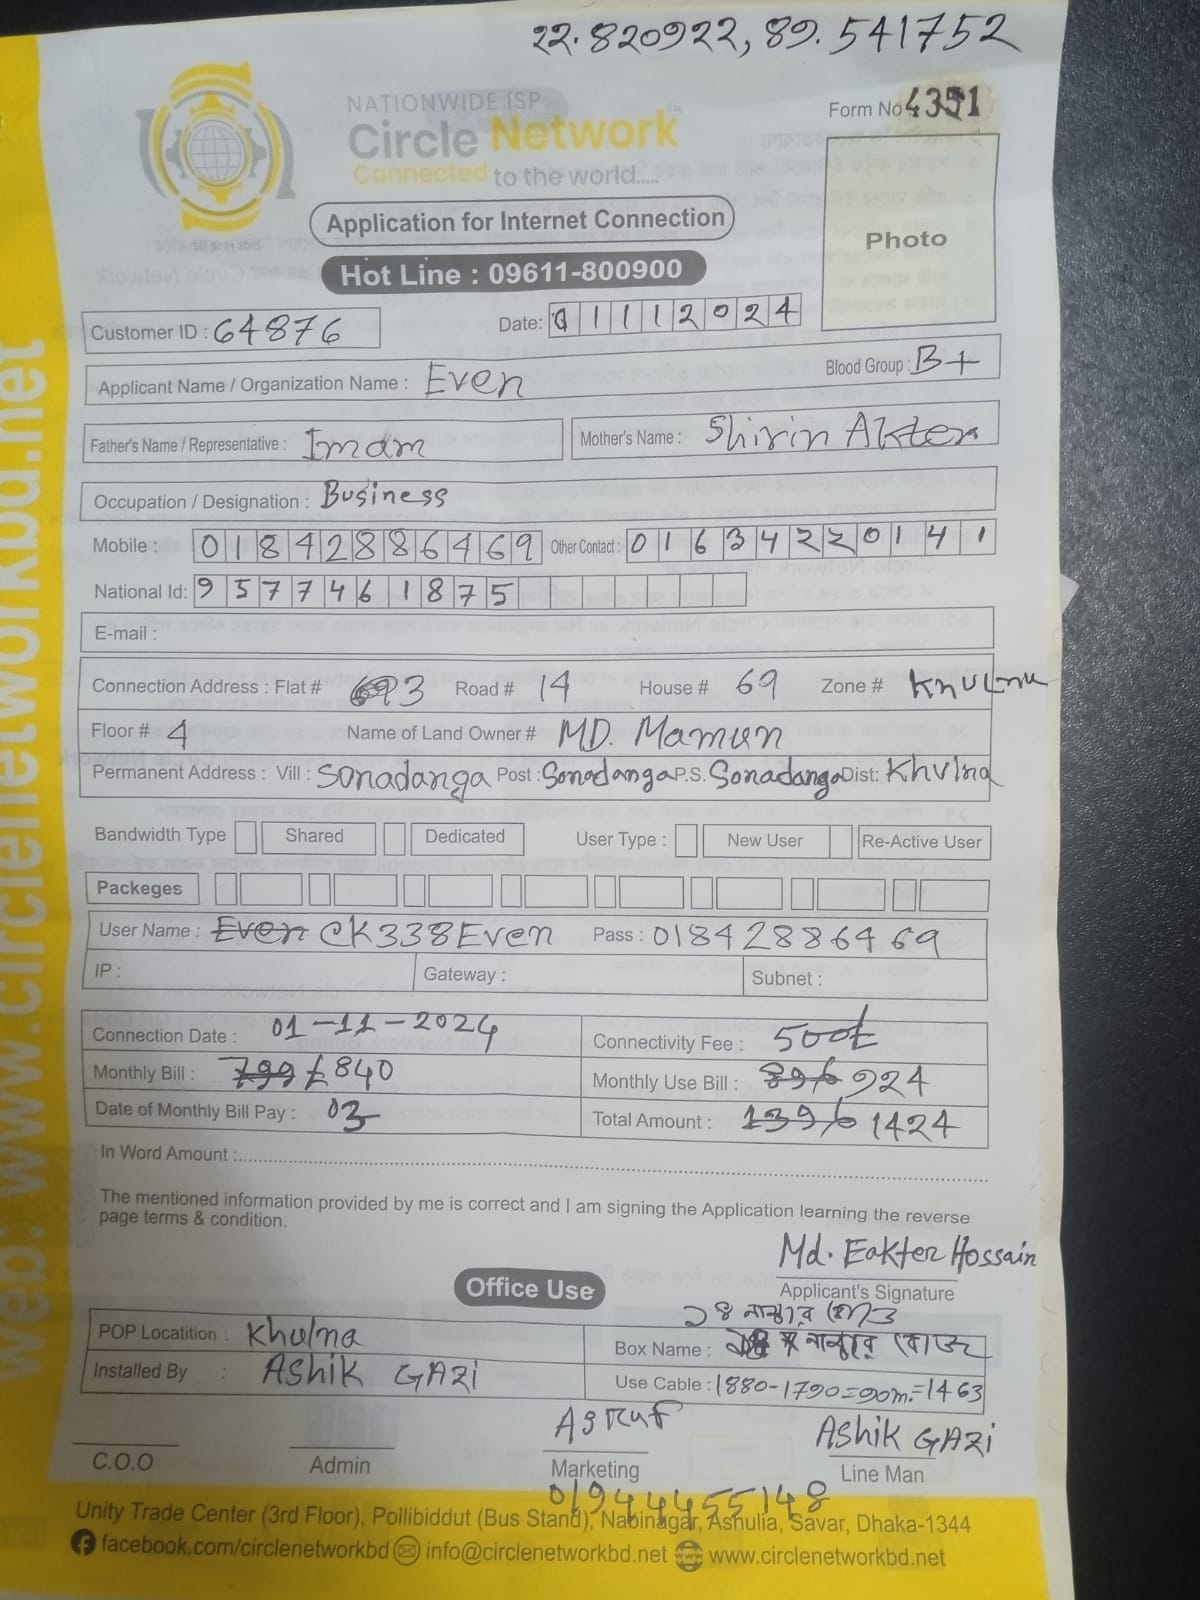 22.820922, 89.541752
NATIONWIDE ISP
Circle Network
Connected to the world.....
Form No 4351
Application for Internet Connection
Photo
Hot Line : 09611-800900
Customer ID : 64876 Date: 01112024
Applicant Name / Organization Name : Even Blood Group : B+
Father's Name / Representative : Imam Mother's Name : Shirin Akter
Occupation / Designation : Business
Mobile : 01842886469 Other Contact : 01634220141
National Id: 9577461875
E-mail :
Connection Address : Flat # 693 Road # 14 House # 69 Zone # Khulna
Floor # 4 Name of Land Owner # MD. Mamun
Permanent Address : Vill : Sonadanga Post : Sonadanga P.S. Sonadanga Dist: Khulna
Bandwidth Type Shared Dedicated User Type : New User Re-Active User
Packeges
User Name : Even CK338Even Pass : 01842886469
IP : Gateway : Subnet :
Connection Date : 01-11-2024 Connectivity Fee : 500t
Monthly Bill : 799 £ 840 Monthly Use Bill : 896 924
Date of Monthly Bill Pay : 03 Total Amount : 1396 1424
In Word Amount :
The mentioned information provided by me is correct and I am signing the Application learning the reverse
page terms & condition.
Md. Eakter Hossain
Office Use Applicant's Signature
১৪ নাম্বার রোড
POP Locatition : Khulna Box Name : নাম্বার রোড
Installed By : Ashik GAZi Use Cable : 1880-1790=90m.=1463
Asruf Ashik GAZi
C.O.O Admin Marketing Line Man
01944455148
Unity Trade Center (3rd Floor), Pollibiddut (Bus Stand), Nabinagar, Ashulia, Savar, Dhaka-1344
facebook.com/circlenetworkbd info@circlenetworkbd.net www.circlenetworkbd.net
web: www.circlenetworkbd.net